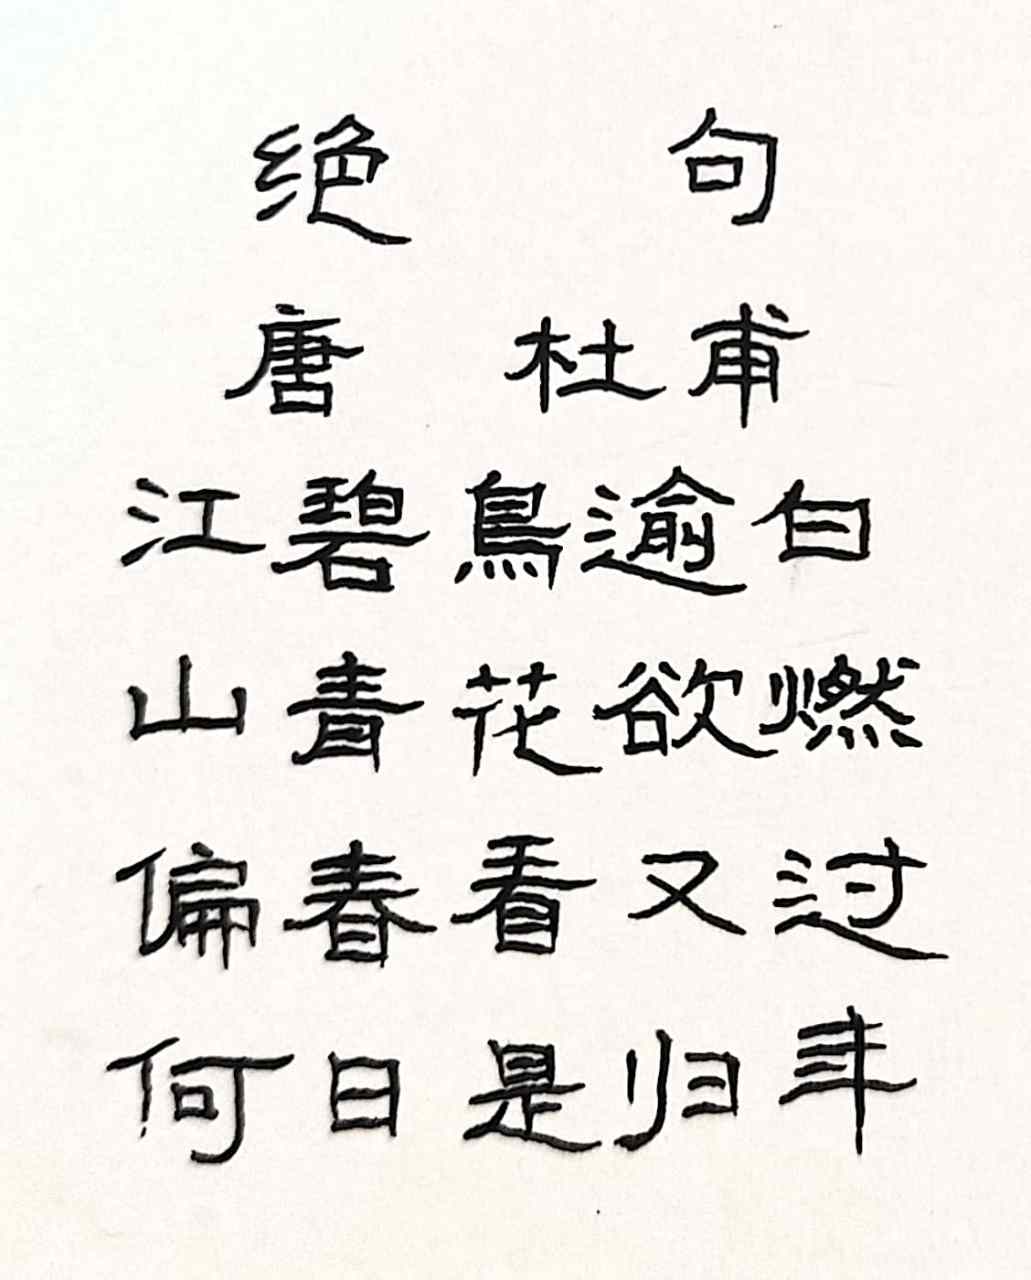 绝句
唐 杜甫
江碧鳥逾白
山青花欲燃
偏春看又过
何日是归年